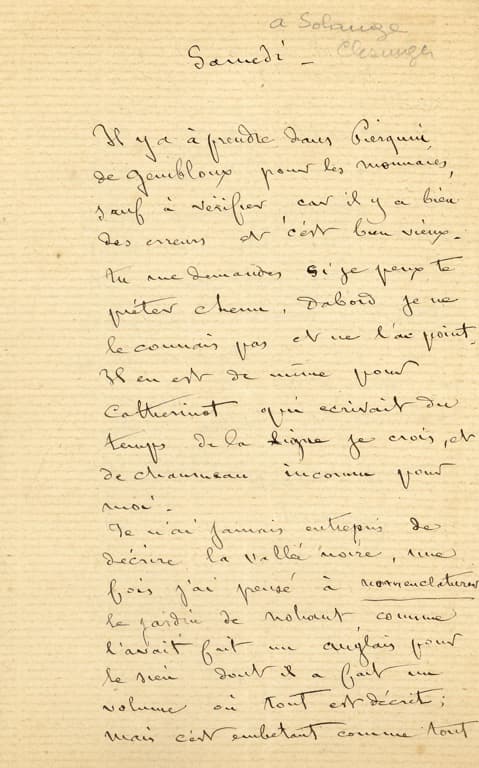 a Solange
Clesinger
Samedi –
Il y a à prendre dans Pierquin
de Gembloux pour les monnaies,
sauf à vérifier car il y a bien
des erreurs et c'est bien vieux –
tu me demandes si je peux te
prêter chenu, Dabord je ne
le connais pas et ne l'ai point.
Il en est de même pour
Catherinot qui ecrivait du
temps de la ligue je crois, et
de chaumeau inconnu pour
moi –
Je n'ai jamais entrepris de
décrire la vallé noire, une
fois j'ai pensé à nomenclaturer
le jardin de nohant, comme
l'avait fait un anglais pour
le sien dont il a fait un
volume où tout est décrit;
mais c'est embetant comme tout